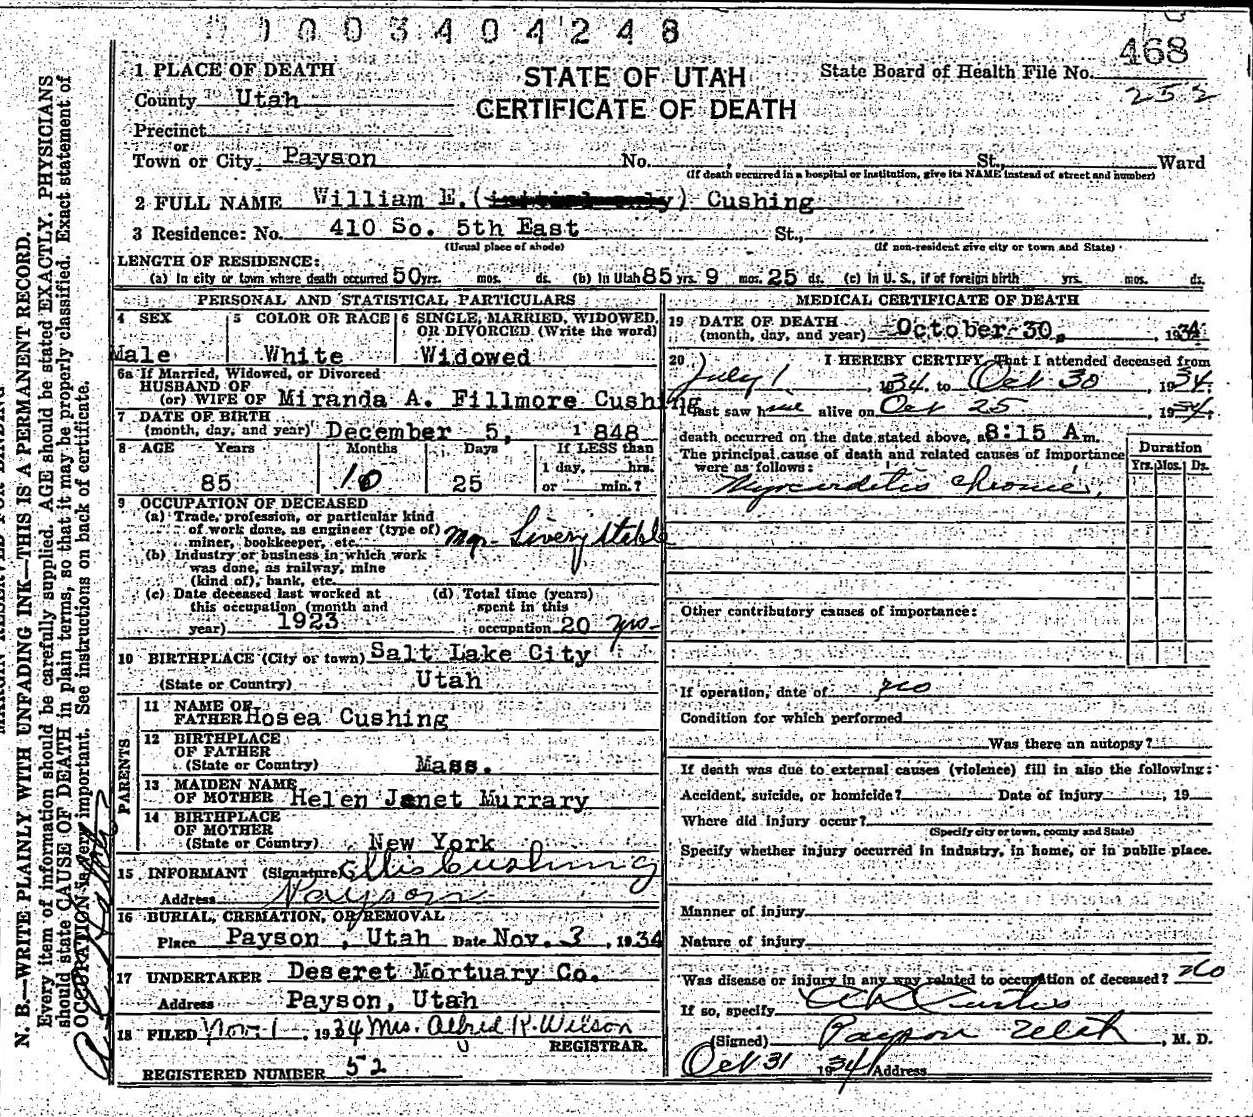 003404248
468
1 PLACE OF DEATH
STATE OF UTAH
State Board of Health File No.
252
County Utah
CERTIFICATE OF DEATH
Precinct
or
Town or City Payson No. , St., Ward
(If death occurred in a hospital or institution, give its NAME instead of street and number)
2 FULL NAME William E. ( ) Cushing
3 Residence: No. 410 So. 5th East St.,
(Usual place of abode) (If non-resident give city or town and State)
LENGTH OF RESIDENCE:
(a) In city or town where death occurred 50 yrs. mos. ds. (b) In Utah 85 yrs. 9 mos. 25 ds. (c) In U. S., if of foreign birth yrs. mos. ds.
PERSONAL AND STATISTICAL PARTICULARS
4 SEX
Male
5 COLOR OR RACE
White
6 SINGLE, MARRIED, WIDOWED, OR DIVORCED (Write the word)
Widowed
6a If Married, Widowed, or Divorced
HUSBAND OF
(or) WIFE OF Miranda A. Fillmore Cushing
7 DATE OF BIRTH
(month, day, and year) December 5, 1848
8 AGE Years Months Days If LESS than
1 day, hrs.
85 10 25 or min.?
9 OCCUPATION OF DECEASED
(a) Trade, profession, or particular kind
of work done, as engineer (type of)
miner, bookkeeper, etc. Mgr- Livery Stable
(b) Industry or business in which work
was done, as railway, mine
(kind of), bank, etc.
(c) Date deceased last worked at
this occupation (month and
year) 1923
(d) Total time (years)
spent in this
occupation 20 yrs-
10 BIRTHPLACE (City or town) Salt Lake City
(State or Country) Utah
PARENTS
11 NAME OF
FATHER Hosea Cushing
12 BIRTHPLACE
OF FATHER
(State or Country) Mass.
13 MAIDEN NAME
OF MOTHER Helen Janet Murrary
14 BIRTHPLACE
OF MOTHER
(State or Country) New York
15 INFORMANT (Signature) Ellis Cushing
Address Payson
16 BURIAL, CREMATION, OR REMOVAL
Place Payson, Utah Date Nov. 3, 1934
17 UNDERTAKER Deseret Mortuary Co.
Address Payson, Utah
18 FILED Nov. 1, 1934 Mrs. Alfred R. Wilson
REGISTRAR.
REGISTERED NUMBER 52
MEDICAL CERTIFICATE OF DEATH
19 DATE OF DEATH
(month, day, and year) October 30, 1934
20 I HEREBY CERTIFY, That I attended deceased from
July 1, 1934, to Oct 30, 1934.
I last saw him alive on Oct 25 1934,
death occurred on the date stated above, at 8:15 A m.
The principal cause of death and related causes of importance
were as follows:
Duration
Yrs. Mos. Ds.
Myocarditis chronic.
Other contributory causes of importance:
If operation, date of no
Condition for which performed
Was there an autopsy?
If death was due to external causes (violence) fill in also the following:
Accident, suicide, or homicide? Date of injury , 19
Where did injury occur?
(Specify city or town, county and State)
Specify whether injury occurred in industry, in home, or in public place.
Manner of injury
Nature of injury
Was disease or injury in any way related to occupation of deceased? no
If so, specify
Curtis
(Signed) Payson Utah, M. D.
Oct 31 1934 Address
N. B.—WRITE PLAINLY, WITH UNFADING INK—THIS IS A PERMANENT RECORD.
Every item of information should be carefully supplied. AGE should be stated EXACTLY. PHYSICIANS
should state CAUSE OF DEATH in plain terms, so that it may be properly classified. Exact statement of
OCCUPATION is very important. See instructions on back of certificate.